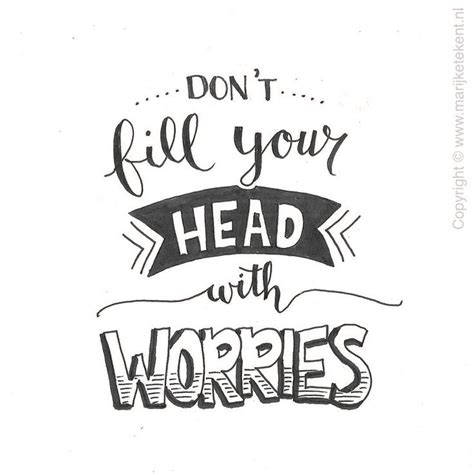 DON'T
fill your
HEAD
with
WORRIES
Copyright © www.marijketekent.nl